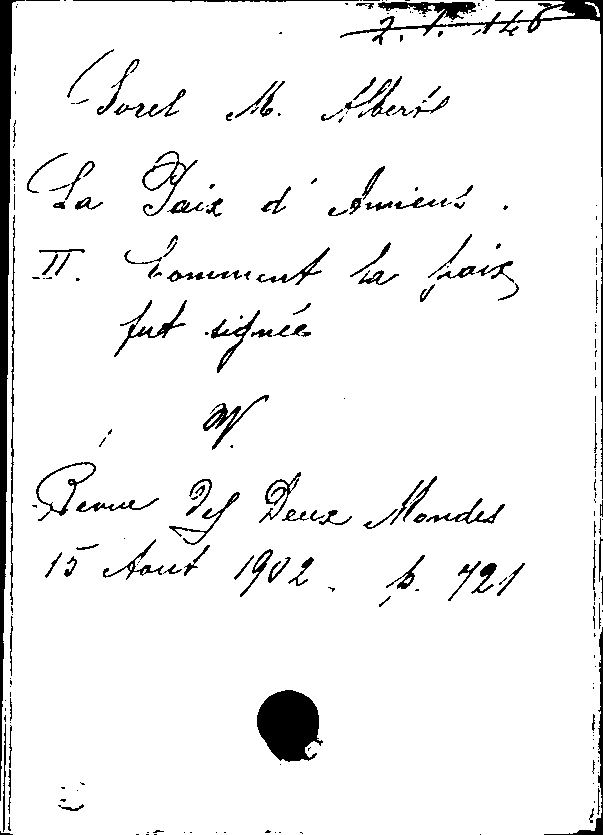 2. 1. 146
Sorel M. Albert
La Paix d' Amiens.
II. Comment la paix
fut signée
W.
Revue des Deux Mondes
15 Aout 1902. p. 721